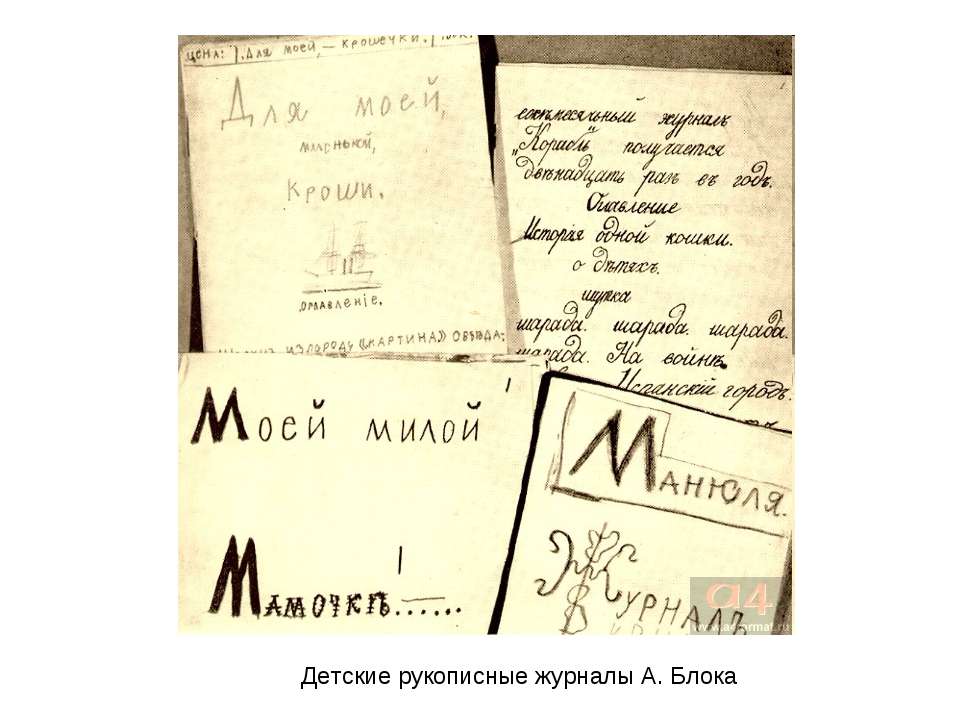 цена: Для моей, — крошечки.
Для моей,
маленькой,
кроши.
оглавленіе.
ежемѣсячный журналъ
„Корабль" получается
двѣнадцать разъ въ годъ.
Оглавление
Исторія одной кошки.
о дѣтяхъ.
шутка
шарада. шарада. шарада.
шарада. На войнѣ.
Испанскій городъ.
Моей милой
Мамочкѣ......
Манюля.
Журналъ
a4
www.a4format.ru
Детские рукописные журналы А. Блока